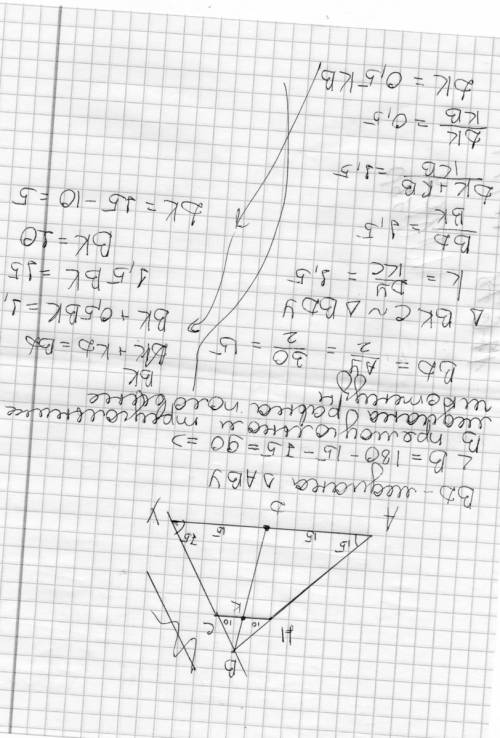 B
H
10
K
10
C
A
15
15
D
15
75
У
BD - медиана △ABУ
∠B = 180 - 15 - 75 = 90 =>
В прямоугольном треугольнике
медиана равна половине
гипотенузы
BD = АУ/2 = 30/2 = 15
△BKC ~ △BDУ
k = DУ/KC = 1,5
BD/BK = 1,5
DK + KB/KB = 1,5
DK/KB = 0,5
DK = 0,5 · KB
BK
BK + KD = BD
BK + 0,5BK = 1,
1,5 BK = 15
BK = 10
DK = 15 - 10 = 5